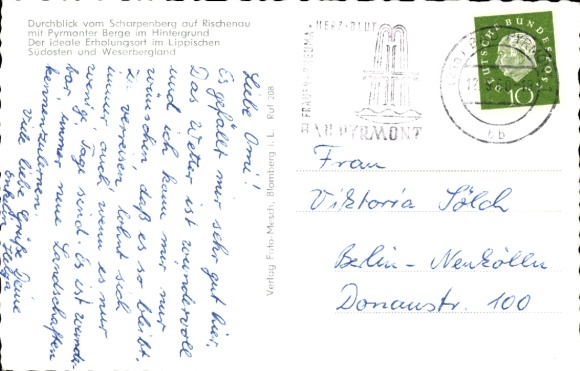 Durchblick vom Scharpenberg auf Rischenau
mit Pyrmonter Berge im Hintergrund
Der ideale Erholungsort im Lippischen
Südosten und Weserbergland
Liebe Omi!
Es gefällt mir sehr gut hier.
Das Wetter ist wundervoll
und ich kann mir nur
wünschen, daß es so bleibt.
Zu verreisen, lohnt sich
immer, auch wenn es nur
wenige Tage sind. Es ist wunder-
bar, immer neue Landschaften
kennenzulernen.
Viele liebe Grüße Deine
Enkelin Helga
Verlag Foto-Mesch, Blomberg i. L. Ruf 208
HERZ · BLUT
FRAUEN · RHEUMA
BAD PYRMONT
bb
DEUTSCHE BUNDESPOST
10
Frau
Viktoria Sölch
Berlin-Neukölln
Donaustr. 100